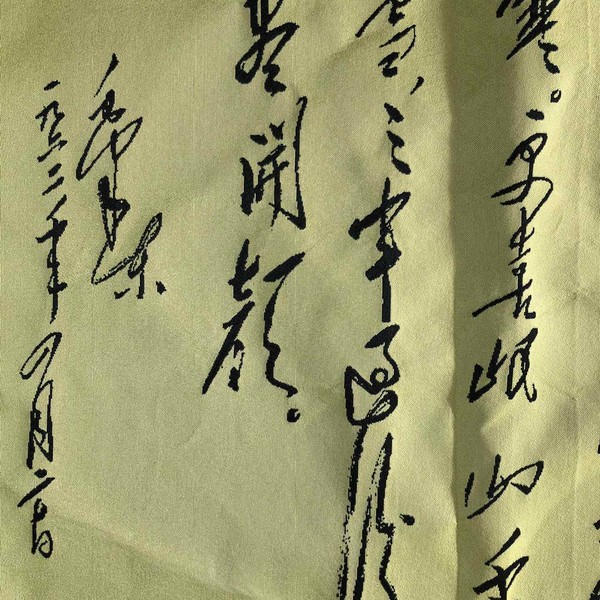 寒。更喜岷山千
雪、三軍過後
盡開顏。
毛澤東
一九六二年四月二十日